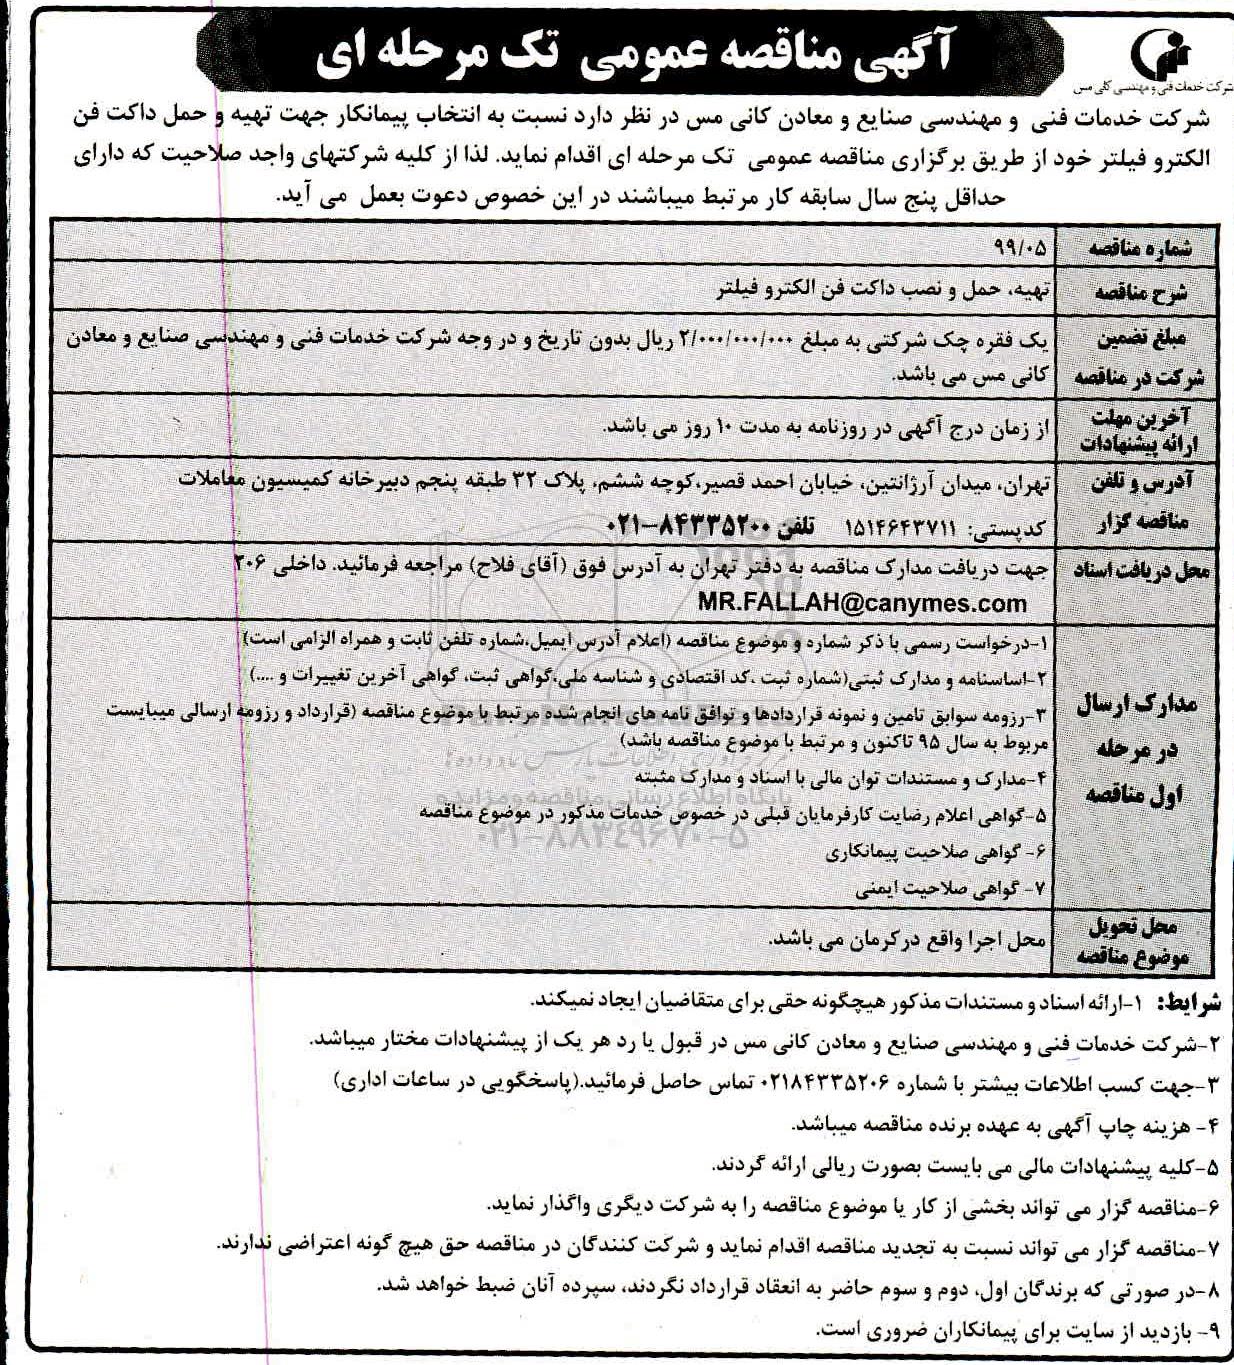 آگهی مناقصه عمومی تک مرحله ای
شرکت خدمات فنی و مهندسی کانی مس
شرکت خدمات فنی و مهندسی صنایع و معادن کانی مس در نظر دارد نسبت به انتخاب پیمانکار جهت تهیه و حمل داکت فن
الکترو فیلتر خود از طریق برگزاری مناقصه عمومی تک مرحله ای اقدام نماید. لذا از کلیه شرکتهای واجد صلاحیت که دارای
حداقل پنج سال سابقه کار مرتبط میباشند در این خصوص دعوت بعمل می آید.
شماره مناقصه
۹۹/۰۵
شرح مناقصه
تهیه، حمل و نصب داکت فن الکترو فیلتر
مبلغ تضمین
شرکت در مناقصه
یک فقره چک شرکتی به مبلغ ۲/۰۰۰/۰۰۰/۰۰۰ ریال بدون تاریخ و در وجه شرکت خدمات فنی و مهندسی صنایع و معادن
کانی مس می باشد.
آخرین مهلت
ارائه پیشنهادات
از زمان درج آگهی در روزنامه به مدت ۱۰ روز می باشد.
آدرس و تلفن
مناقصه گزار
تهران، میدان آرژانتین، خیابان احمد قصیر،کوچه ششم، پلاک ۳۲ طبقه پنجم دبیرخانه کمیسیون معاملات
کدپستی: ۱۵۱۴۶۴۳۷۱۱ تلفن ۸۴۳۳۵۲۰۰-۰۲۱
محل دریافت اسناد
جهت دریافت مدارک مناقصه به دفتر تهران به آدرس فوق (آقای فلاح) مراجعه فرمائید. داخلی ۲۰۶
MR.FALLAH@canymes.com
مدارک ارسال
در مرحله
اول مناقصه
۱-درخواست رسمی با ذکر شماره و موضوع مناقصه (اعلام آدرس ایمیل،شماره تلفن ثابت و همراه الزامی است)
۲-اساسنامه و مدارک ثبتی(شماره ثبت ،کد اقتصادی و شناسه ملی،گواهی ثبت، گواهی آخرین تغییرات و ....)
۳-رزومه سوابق تامین و نمونه قراردادها و توافق نامه های انجام شده مرتبط با موضوع مناقصه (قرارداد و رزومه ارسالی میبایست
مربوط به سال ۹۵ تاکنون و مرتبط با موضوع مناقصه باشد)
۴-مدارک و مستندات توان مالی با اسناد و مدارک مثبته
۵-گواهی اعلام رضایت کارفرمایان قبلی در خصوص خدمات مذکور در موضوع مناقصه
۶- گواهی صلاحیت پیمانکاری
۷- گواهی صلاحیت ایمنی
پایگاه اطلاع رسانی مناقصه و مزایده
۰۲۱-۸۸۳۴۹۶۷۰-۵
محل تحویل
موضوع مناقصه
محل اجرا واقع در کرمان می باشد.
شرایط: ۱-ارائه اسناد و مستندات مذکور هیچگونه حقی برای متقاضیان ایجاد نمیکند.
۲-شرکت خدمات فنی و مهندسی صنایع و معادن کانی مس در قبول یا رد هر یک از پیشنهادات مختار میباشد.
۳-جهت کسب اطلاعات بیشتر با شماره ۰۲۱۸۴۳۳۵۲۰۶ تماس حاصل فرمائید.(پاسخگویی در ساعات اداری)
۴- هزینه چاپ آگهی به عهده برنده مناقصه میباشد.
۵-کلیه پیشنهادات مالی می بایست بصورت ریالی ارائه گردند.
۶-مناقصه گزار می تواند بخشی از کار یا موضوع مناقصه را به شرکت دیگری واگذار نماید.
۷-مناقصه گزار می تواند نسبت به تجدید مناقصه اقدام نماید و شرکت کنندگان در مناقصه حق هیچ گونه اعتراضی ندارند.
۸-در صورتی که برندگان اول، دوم و سوم حاضر به انعقاد قرارداد نگردند، سپرده آنان ضبط خواهد شد.
۹- بازدید از سایت برای پیمانکاران ضروری است.